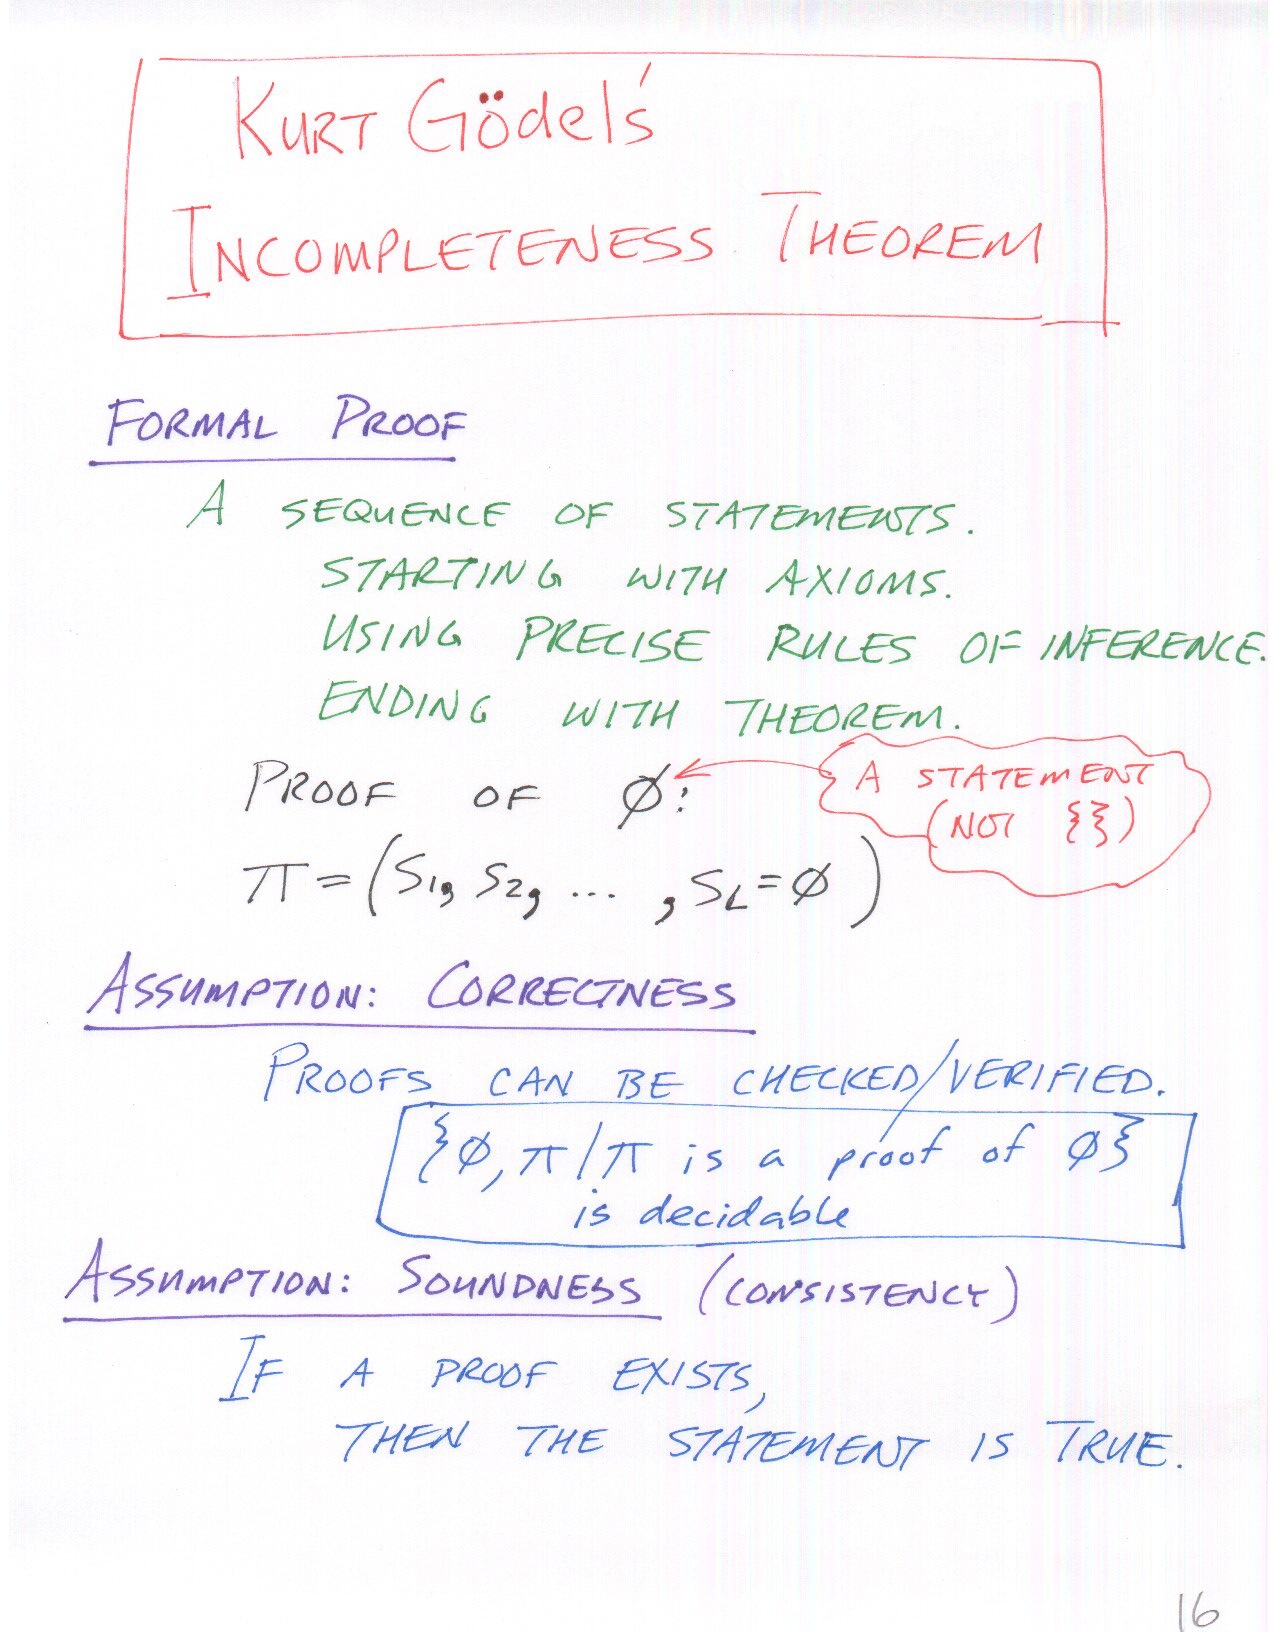 KURT Gödel's
INCOMPLETENESS THEOREM
FORMAL PROOF
A SEQUENCE OF STATEMENTS.
STARTING WITH AXIOMS.
USING PRECISE RULES OF INFERENCE.
ENDING WITH THEOREM.
PROOF OF ϕ:
A STATEMENT
(NOT {})
π = (S₁, S₂, ... , S_L = ϕ)
ASSUMPTION: CORRECTNESS
PROOFS CAN BE CHECKED/VERIFIED.
{ϕ, π / π is a proof of ϕ}
is decidable
ASSUMPTION: SOUNDNESS (CONSISTENCY)
IF A PROOF EXISTS,
THEN THE STATEMENT IS TRUE.
16